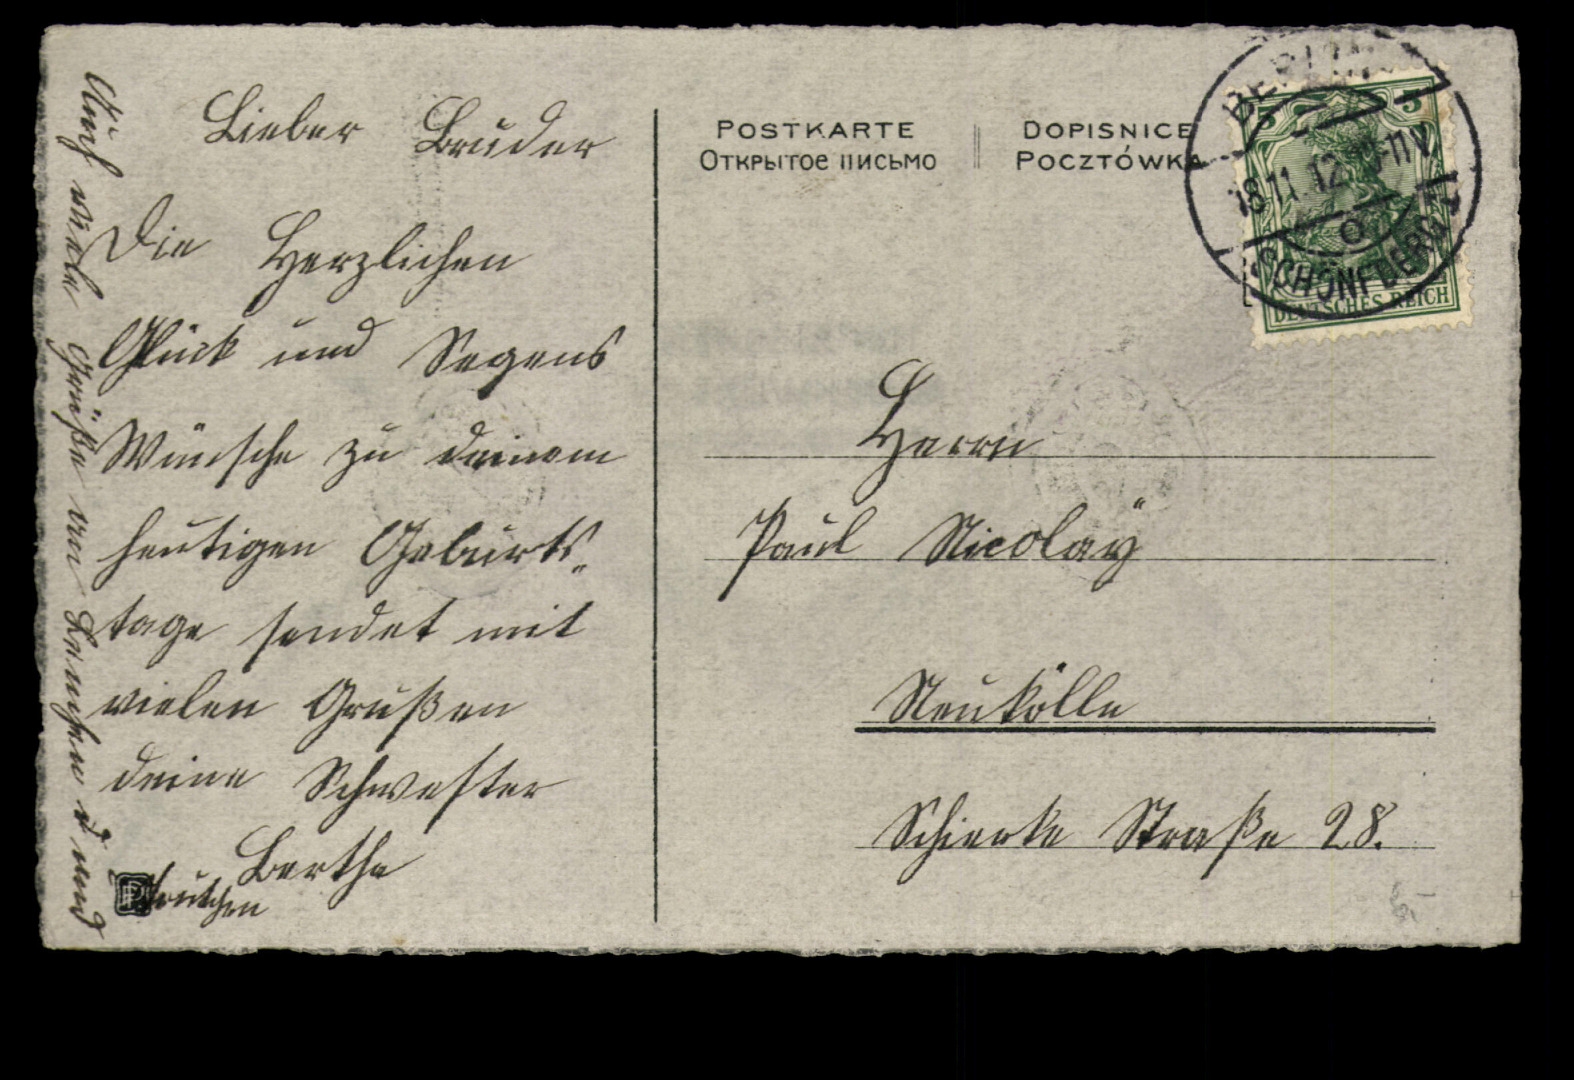 Lieber Bruder
Die Herzlichen
Glück und Segens
Wünsche zu deinem
heutigen Geburts„
tage sendet mit
vielen Grüßen
deine Schwester
Bertha
Auch viele Grüße von Lenchen u und
Trutchen
POSTKARTE
ОТКРЫТОЕ ПИСЬМО
DOPISNICE
POCZTÓWKA
BERLIN
18.11.12. 10-11V
o
SCHÖNEBERG 1
5 5
DEUTSCHES REICH
Herrn
Paul Nicolaÿ
Neukölln
Schierke Straße 28.